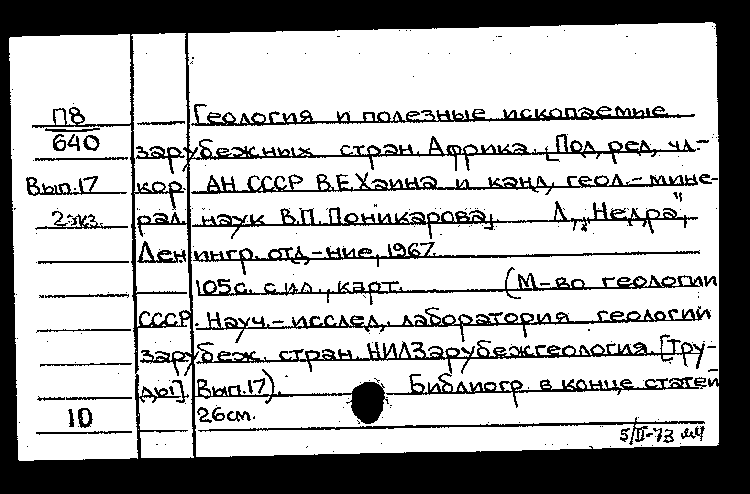 П8 Геология и полезные ископаемые
640 зарубежных стран. Африка. [Под ред. чл.-
Вып.17 кор. АН СССР В.Е.Хаина и канд. геол.-мине-
2экз. рал. наук В.П.Поникарова]. Л., "Недра",
Ленингр. отд-ние, 1967.
105с. с ил., карт. (М-во геологии
СССР. Науч.-исслед. лаборатория геологии
зарубеж. стран. НИЛЗарубежгеология. [Тру-
ды]. Вып.17). Библиогр. в конце статей
10 26см.
5/II-73